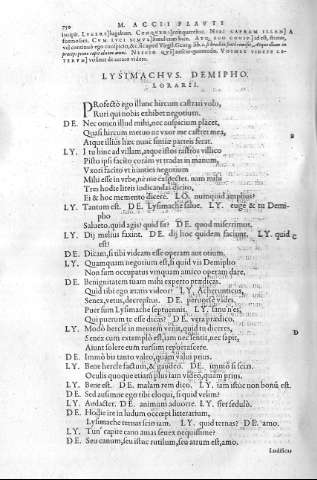 M. ACCII PLAVTE
LYSIMACHVS. DEMIPHO.
LORARII.
PRofectò ego illunc hircum castrari volo,
Ruri qui nobis exhibet negotium.
DE. Nec omen illud mihi, nec auspicium placet,
Quasi hircum metuo ne vxor me castret mea,
Atque illius hæc nunc simiæ partes ferat.
LY. I tu hinc ad villam, atque istos rastros villico
Pisto ipsi facito coràm vt tradas in manum,
Vxori facito vt nunties negotium
Mihi esse in vrbe, ne me exspectet. nam mihi
Tres hodie liteis iudicandas dicito,
Ei & hoc memento dicere. LO. numquid ampliùs?
LY. Tantum est. DE. Lysimache salue. LY. euge & tu Demi-
pho
Salueto. quid agis? quid fit? DE. quod miserrimus.
LY. Dij melius faxint. DE. dij hoc quidem faciunt. LY. quid
est?
DE. Dicam, si tibi videam esse operam aut otium.
LY. Quamquam negotium est, si quid vis Demipho
Non sum occupatus vmquam amico operam dare.
DE. Benignitatem tuam mihi experto prædicas.
Quid tibi ego ætatis videor? LY. Acherunticus,
Senex, vetus, decrepitus. DE. peruersè vides.
Puer sum Lysimache septuennis. LY. sanu'n es,
Qui puerum te esse dicas? DE. vera prædico.
LY. Modò hercle in mentem venit, quid tu diceres,
Senex cum extemplò est, iam nec sentit, nec sapit,
Aiunt solere eum rursum repuerascere.
DE. Immò bis tanto valeo, quàm valui priùs.
LY. Bene hercle factum, & gaudeo. DE. immò si scias.
Oculis quoque etiam plus iam video, quàm priùs.
LY. Bene est. DE. malam rem dico. LY. iam istuc non bonū est.
DE. Sed ausimne ego tibi eloqui, si quid velim?
LY. Audacter. DE. animum aduorte. LY. fiet sedulò.
DE. Hodie ire in ludum occepi litterarium,
Lysimache ternas scio iam. LY. quid ternas? DE. amo.
LY. Tun' capite cano amas senex nequissime?
DE. Seu canum, seu istuc rutilum, seu atrum est, amo.
D
Ludificas